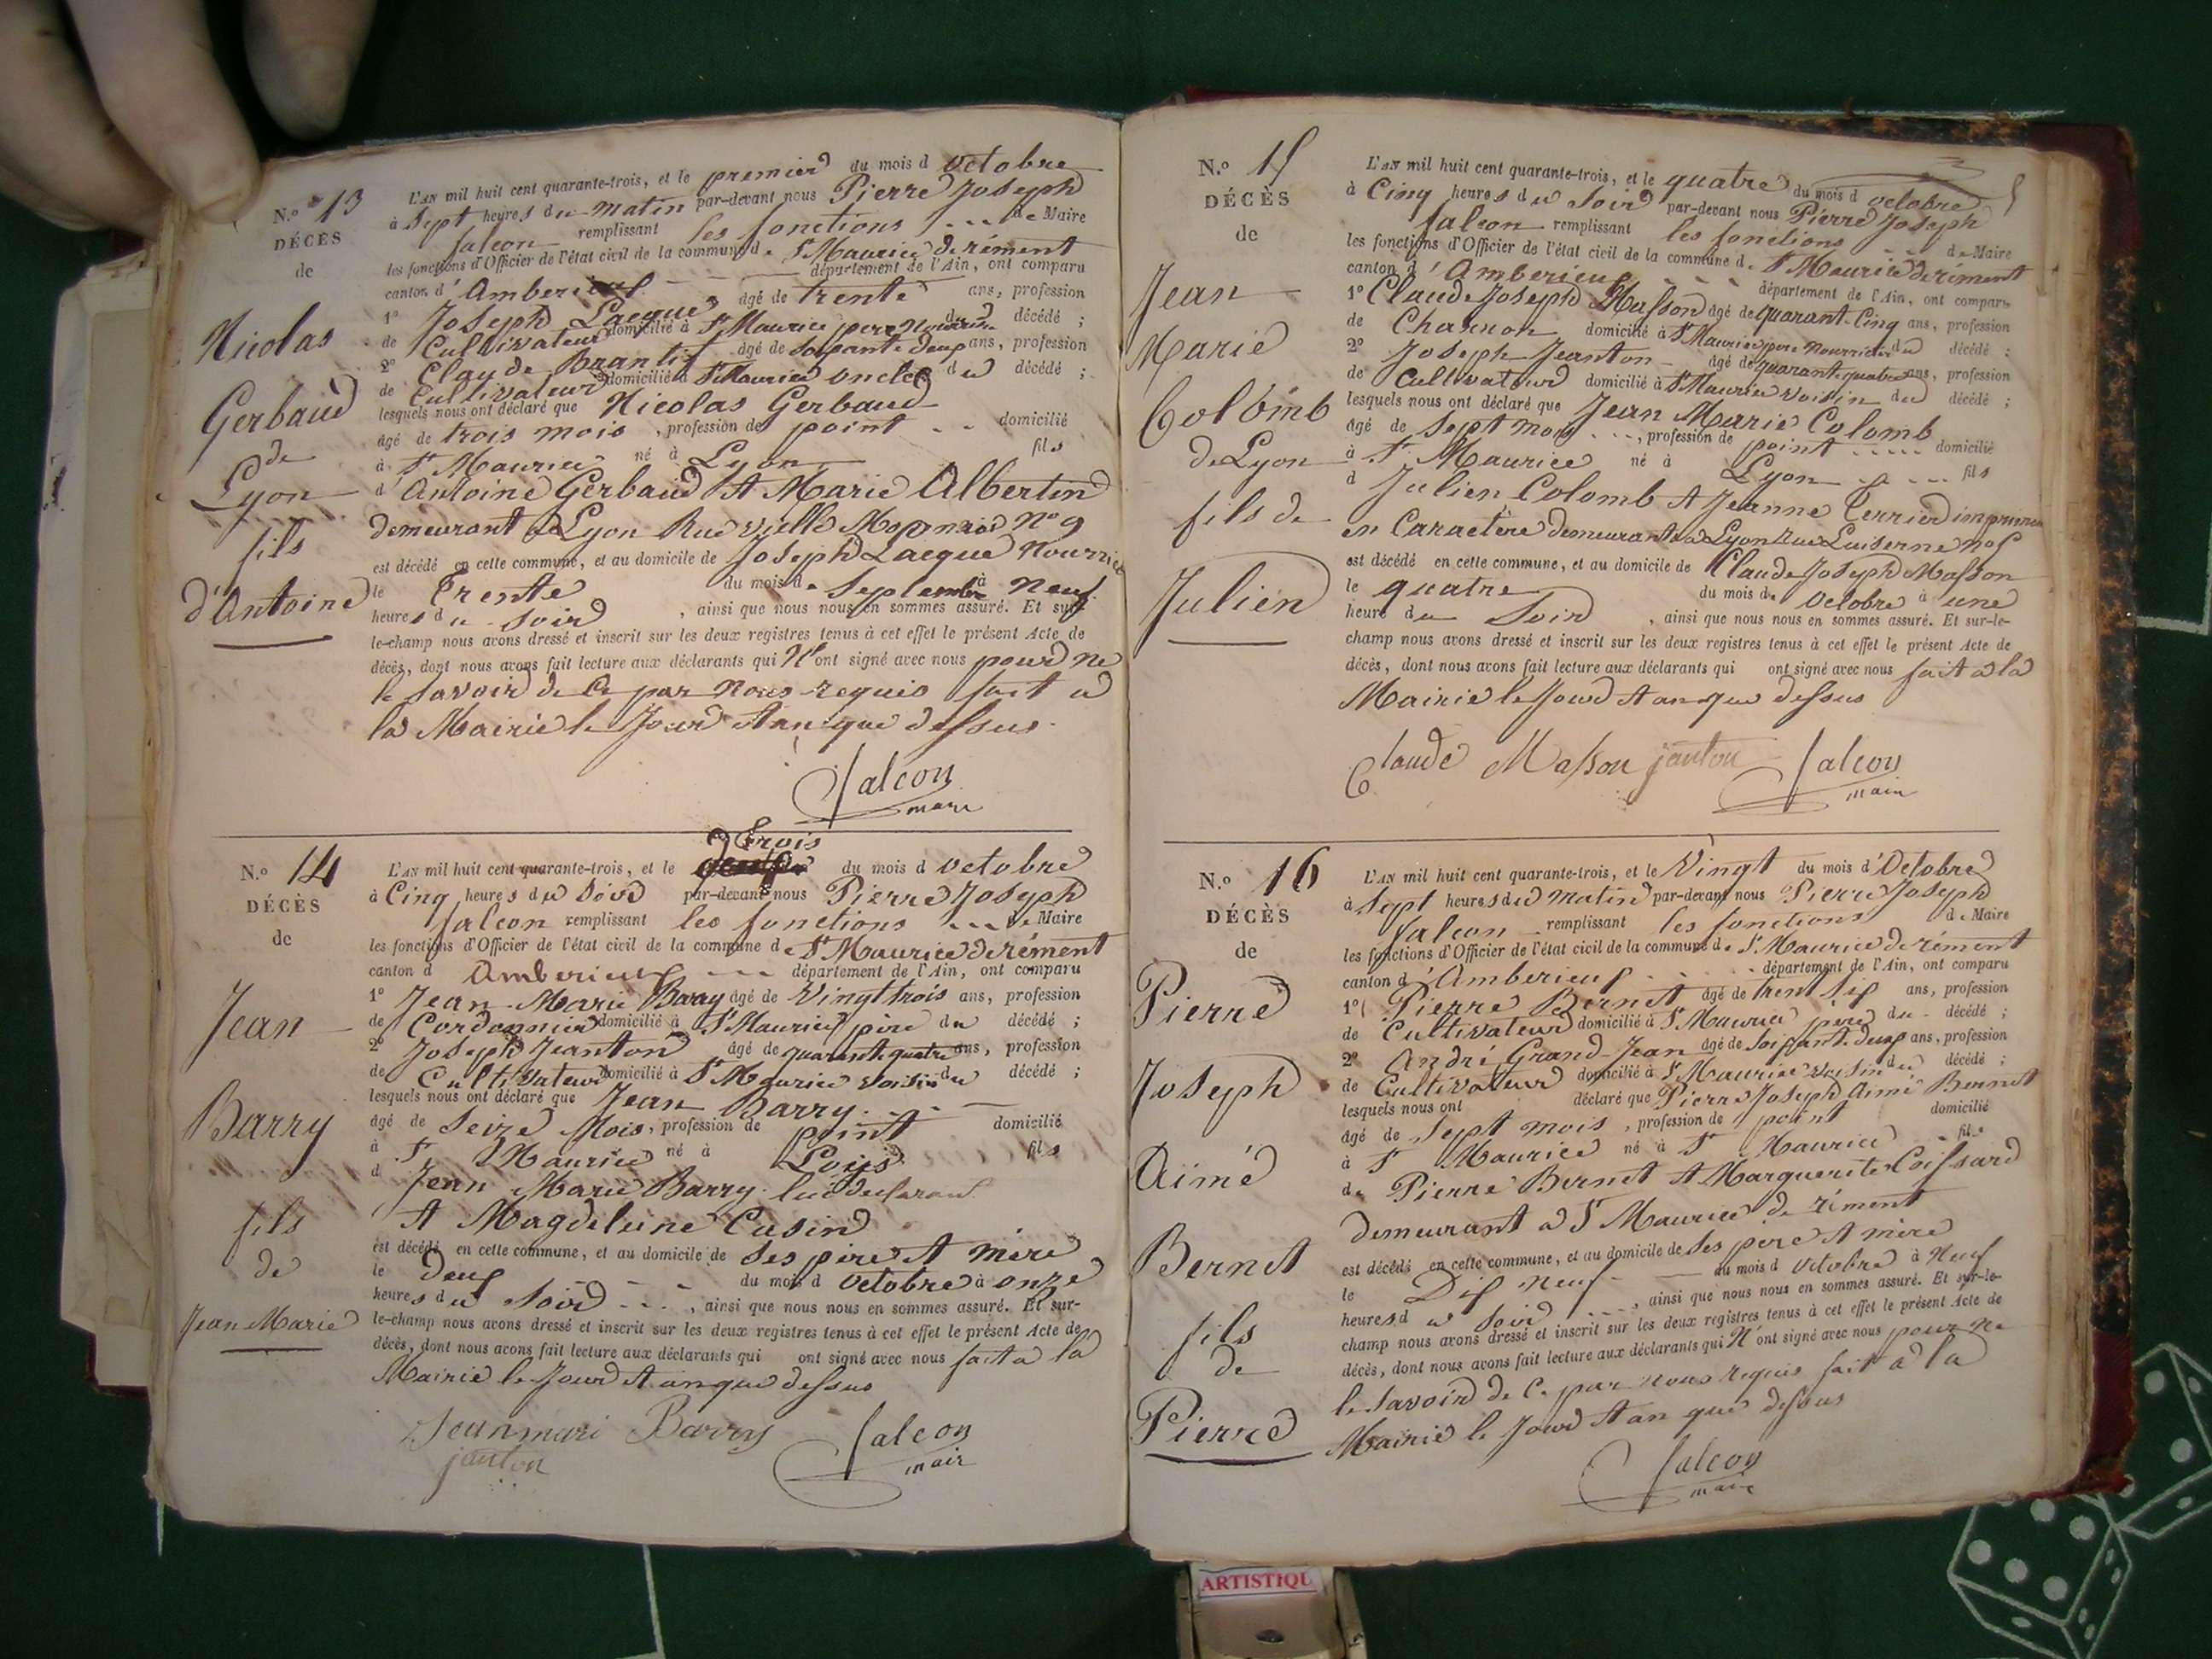 N.o 13
DÉCÈS
de
Nicolas
Gerbaud
de
Lyon
fils
d'Antoine
L'AN mil huit cent quarante-trois, et le premier du mois d octobre
à Sept heures du matin par-devant nous Pierre Joseph
falcon remplissant les fonctions de Maire
les fonctions d'Officier de l'état civil de la commune de St Maurice de rément
canton d' Amberieux département de l'Ain, ont comparu
1o Joseph Lacque âgé de trente ans, profession
de Cultivateur domicilié à St Maurice pere Nourricier du décédé ;
2o Claude Brantis âgé de Soixante deux ans, profession
de Cultivateur domicilié à St Maurice oncle du décédé ;
lesquels nous ont déclaré que Nicolas Gerbaud
âgé de trois mois , profession de point domicilié
à St Maurice né à Lyon fils
d' Antoine Gerbaud et Marie Albertin
demeurant à Lyon Rue vielle No 9
est décédé en cette commune, et au domicile de Joseph Lacque Nourricier
le Trente du mois de Septembre à neuf
heures du Soir , ainsi que nous nous en sommes assuré. Et sur-
le-champ nous avons dressé et inscrit sur les deux registres tenus à cet effet le présent Acte de
décès, dont nous avons fait lecture aux déclarants qui N'ont signé avec nous pour ne
le Savoir de Ce par Nous requis fait à
la Mairie le Jour et an que dessus
falcon
maire
N.o 14
DÉCÈS
de
Jean
Barry
fils
de
Jean Marie
L'AN mil huit cent quarante-trois, et le Trois du mois d octobre
à Cinq heures du Soir par-devant nous Pierre Joseph
falcon remplissant les fonctions de Maire
les fonctions d'Officier de l'état civil de la commune de St Maurice de rément
canton d Amberieux département de l'Ain, ont comparu
1o Jean Marie Barry âgé de Vingt trois ans, profession
de Cordonnier domicilié à St Maurice père du décédé ;
2o Joseph Jeanton âgé de quarante quatre ans, profession
de Cultivateur domicilié à St Maurice voisin du décédé ;
lesquels nous ont déclaré que Jean Barry
âgé de Seize Mois, profession de point domicilié
à St Maurice né à fils
d Jean Marie Barry lui declarant
et Magdeleine Cusin
est décédé en cette commune, et au domicile de Ses pere et mère
le deux du mois d octobre à onze
heures du Soir , ainsi que nous nous en sommes assuré. Et sur-
le-champ nous avons dressé et inscrit sur les deux registres tenus à cet effet le présent Acte de
décès, dont nous avons fait lecture aux déclarants qui ont signé avec nous fait à la
Mairie le Jour et an que dessus
Jeanmari Barry
janton
falcon
mair
N.o 15
DÉCÈS
de
Jean
Marie
Colomb
de Lyon
fils de
Julien
L'AN mil huit cent quarante-trois, et le quatre du mois d octobre
à Cinq heures du Soir par-devant nous Pierre Joseph
falcon remplissant les fonctions de Maire
les fonctions d'Officier de l'état civil de la commune de St Maurice de rément
canton d' Amberieux département de l'Ain, ont comparu
1o Claude Joseph Masson âgé de quarant-Cinq ans, profession
de Charron domicilié à St Maurice pere nourricier du décédé ;
2o Joseph Jeanton âgé de quarante quatre ans, profession
de Cultivateur domicilié à St Maurice Voisin du décédé ;
lesquels nous ont déclaré que Jean Marie Colomb
âgé de Sept mois , profession de point domicilié
à St Maurice né à Lyon fils
d Julien Colomb et Jeanne Terrier imprimeur
en Caractère demeurant à Lyon rue Luiserne no 5
est décédé en cette commune, et au domicile de Claude Joseph Masson
le quatre du mois de octobre à une
heure du Soir , ainsi que nous nous en sommes assuré. Et sur-le-
champ nous avons dressé et inscrit sur les deux registres tenus à cet effet le présent Acte de
décès, dont nous avons fait lecture aux déclarants qui ont signé avec nous fait à la
Mairie le Jour et an que dessus
Claude Masson janton falcon
mair
N.o 16
DÉCÈS
de
Pierre
Joseph
Aimé
Bernet
fils
de
Pierre
L'AN mil huit cent quarante-trois, et le Vingt du mois d'Octobre
à Sept heures du matin par-devant nous Pierre Joseph
falcon remplissant les fonctions de Maire
les fonctions d'Officier de l'état civil de la commune de St Maurice de rément
canton d' Amberieux département de l'Ain, ont comparu
1o Pierre Bernet âgé de trent Six ans, profession
de Cultivateur domicilié à St Maurice pere du décédé ;
2o André Grand-Jean âgé de Soixant Deux ans, profession
de Cultivateur domicilié à St Maurice voisin du décédé ;
lesquels nous ont déclaré que Pierre Joseph Aimé Bernet
âgé de Sept mois , profession de point domicilié
à St Maurice né à St Maurice fils
de Pierre Bernet et Marguerite Coissard
demeurant à St Maurice de rément
est décédé en cette commune, et au domicile de Ses pere et mère
le Dix neuf du mois d octobre à Neuf
heures du Soir , ainsi que nous nous en sommes assuré. Et sur-le-
champ nous avons dressé et inscrit sur les deux registres tenus à cet effet le présent Acte de
décès, dont nous avons fait lecture aux déclarants qui N'ont signé avec nous pour ne
le Savoir de Ce par nous requis fait à la
Mairie le Jour et an que dessus
falcon
maire
ARTISTIQU